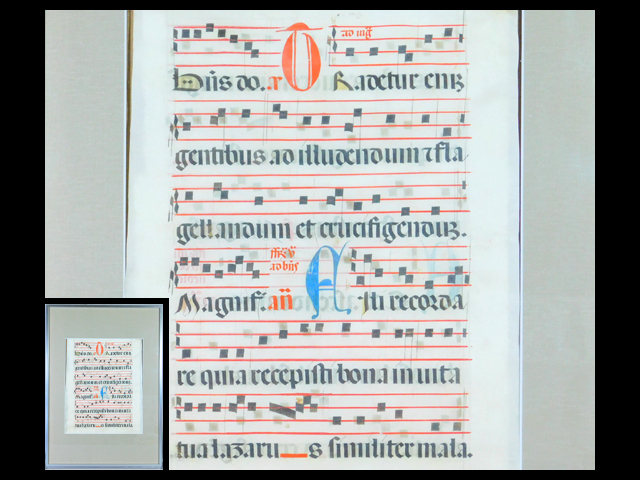 ad mg̃
Dñs do. a. TRadetur eniꝫ
gentibus ad illudendum ⁊ fla
gellandum et crucifigenduꝫ.
ad bñs
Magnif. añ FIli recorda
re quia recepisti bona in uita
tua lazaru_s similiter mala.